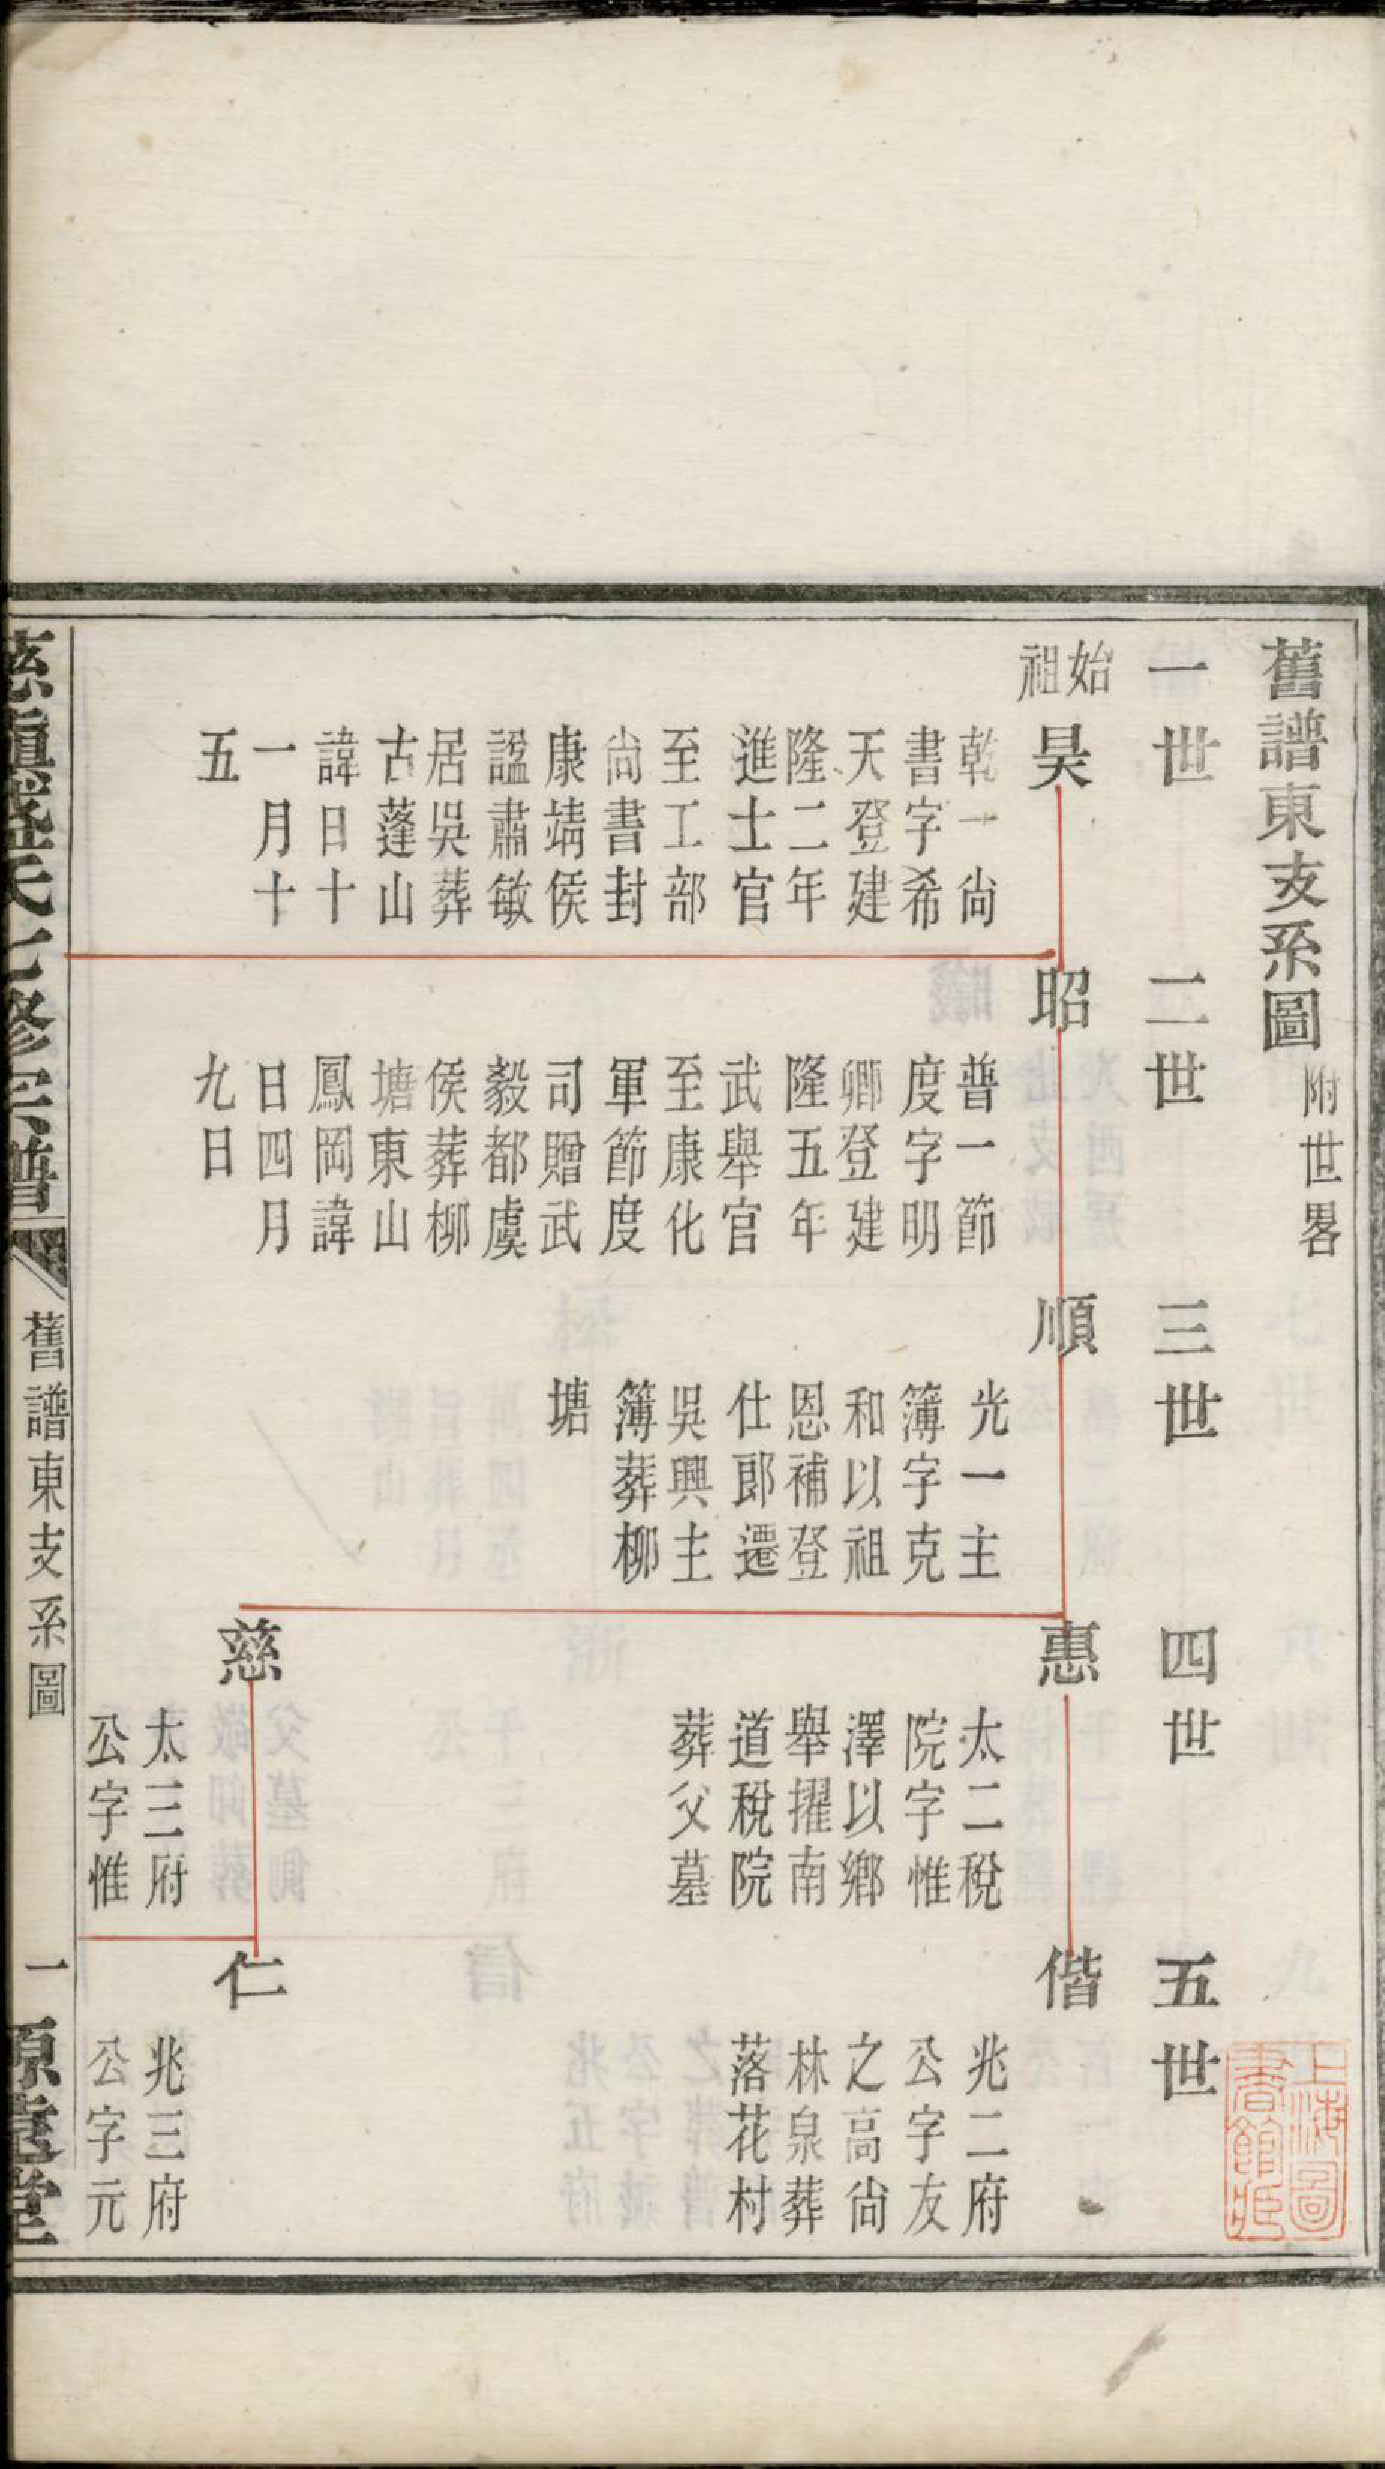 舊譜東支系圖附世畧
一世
二世
三世
四世
五世
始祖昊
乾一尚
書字希
天登建
隆二年
進士官
至工部
尚書封
康靖侯
諡肅敏
居吳葬
古蓬山
諱日十
一月十
五
昭
普一節
度字明
卿登建
隆五年
武舉官
至康化
軍節度
司贈武
毅都虞
侯葬柳
塘東山
鳳岡諱
日四月
九日
順
光一主
簿字克
和以祖
恩補登
仕郎遷
吳興主
簿葬柳
塘
惠
太二稅
院字惟
澤以鄉
舉擢南
道稅院
葬父墓
慈
太三府
公字惟
偕
兆二府
公字友
之高尚
林泉葬
落花村
仁
兆三府
公字元
盛氏七修宗譜
舊譜東支系圖
一
上海圖書館藏